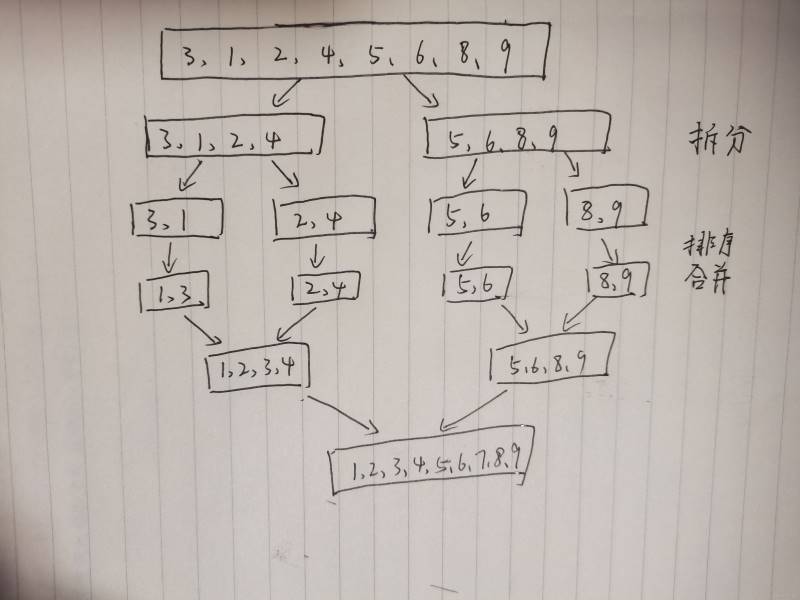 3, 1, 2, 4, 5, 6, 8, 9
3, 1, 2, 4
5, 6, 8, 9
拆分
3, 1
2, 4
5, 6
8, 9
排序
合并
1, 3
2, 4
5, 6
8, 9
1, 2, 3, 4
5, 6, 8, 9
1, 2, 3, 4, 5, 6, 7, 8, 9